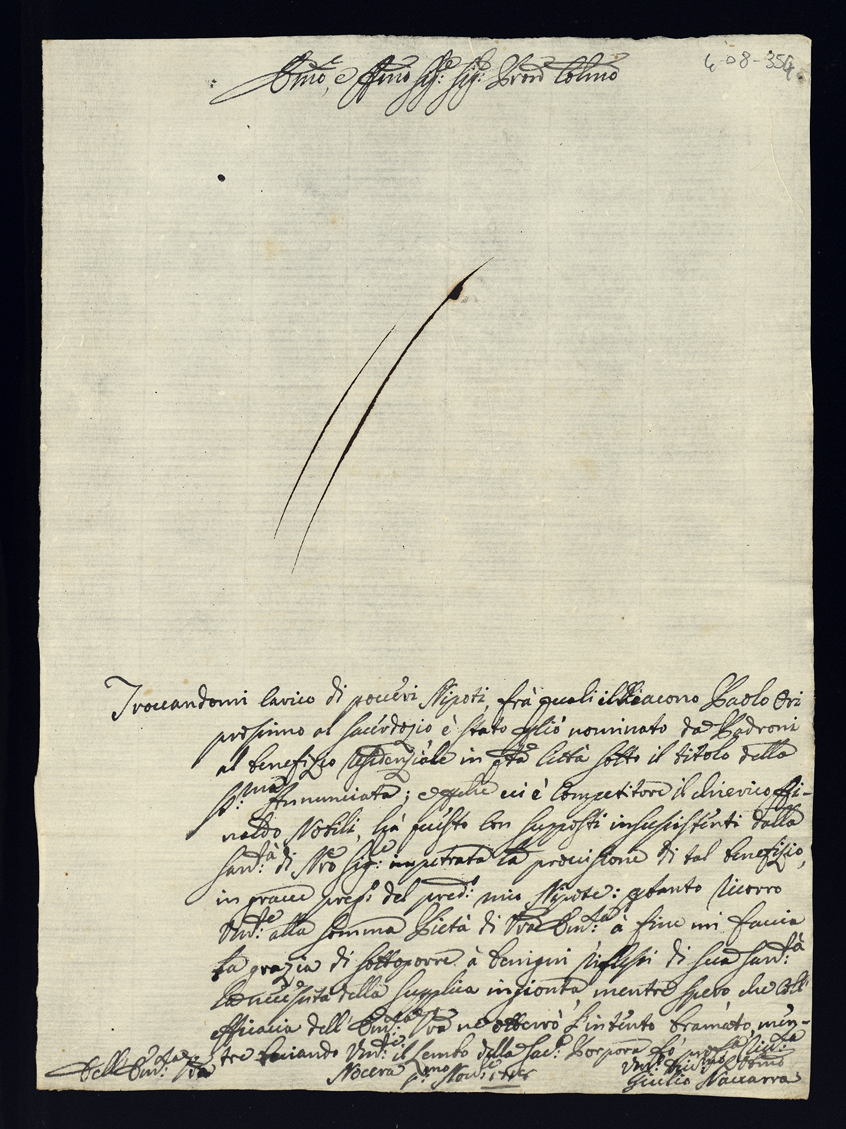 6-08-354
Emo, e Rmo Sig:e Sig:e Pron Colmo
Trovandomi carico di poveri Nipoti, frà quali il Diacono Paolo Ori
prossimo al sacerdozio è stato nominato da Padroni
al benefizio residenziale in Città sotto il titolo della
SS:ma Annunciata; e perche vi è Competitore il chierico
naldo Nobili, hà questo con supposti insussistenti dalla
Sant:à di Nro Sig:e impetrata la provisione di tal benefizio,
in grave preg:o del pred:o mio Nipote: ricorro
Um:e alla somma Pietà di Vra Em:a à fine mi faccia
la grazia di sottoporre à benigni riflessi di sua Sant:à
la necessità della supplica ingionta, mentre spero che coll'
efficacia dell' Em:a Vra ne otterrò l'intento bramato, men-
tre baciando Um:e il Lembo della Sac:a Porpora
Dell' Em:a Vra
Nocera p:mo
Giulio Naccarra